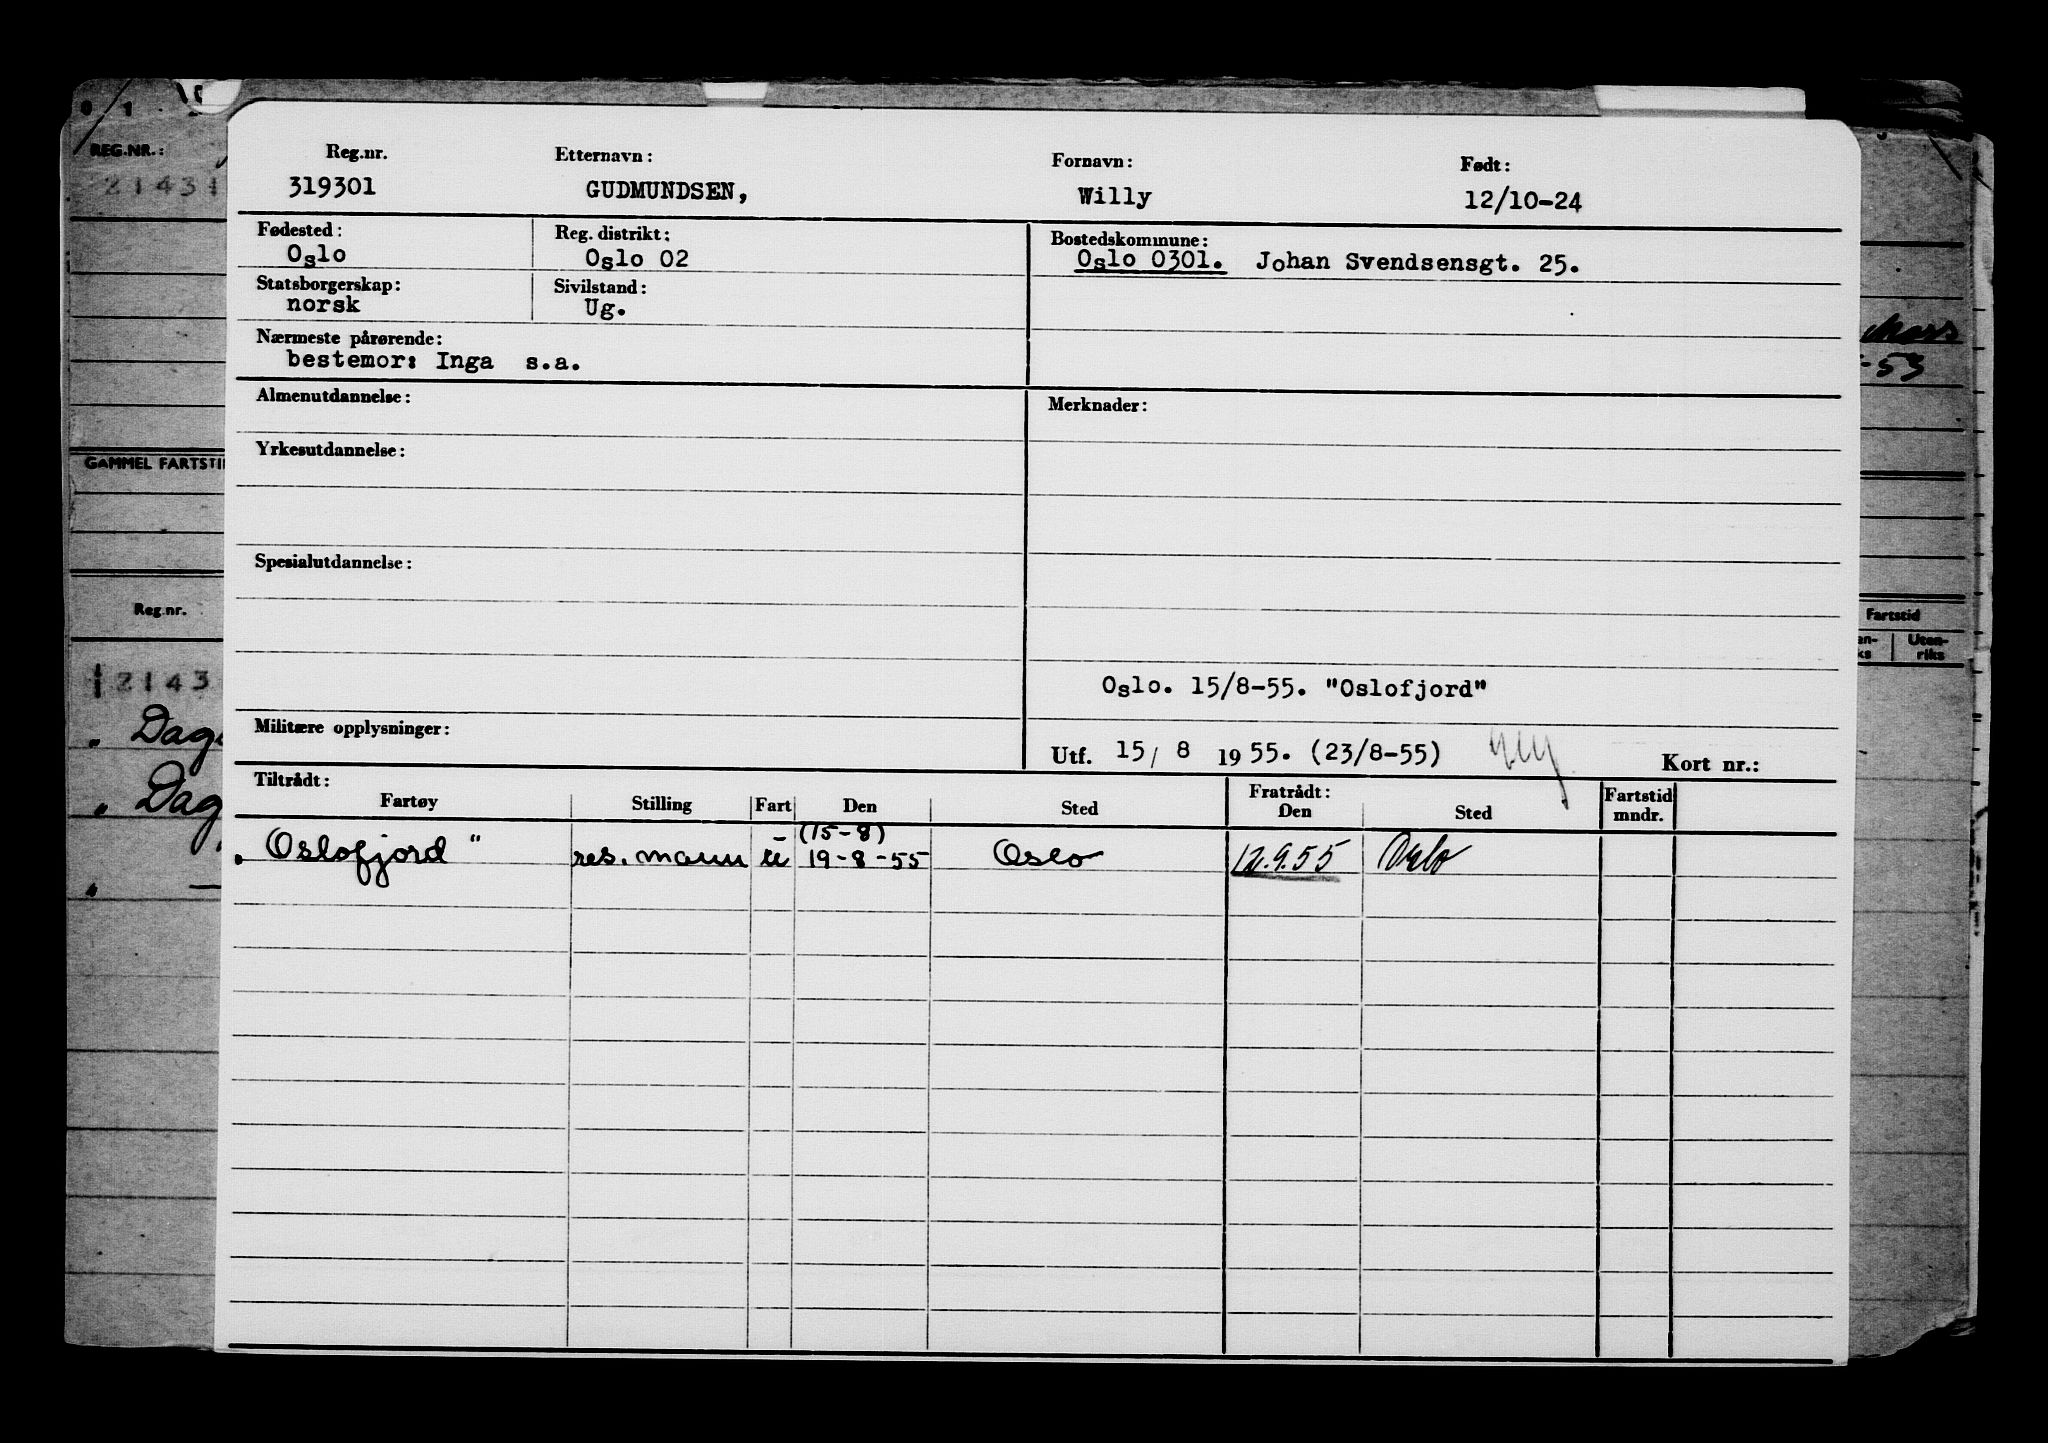 Reg.nr. Etternavn: Fornavn: Født:
319301 GUDMUNDSEN, Willy 12/10-24
Fødested: Reg. distrikt: Bostedskommune:
Oslo Oslo 02 Oslo 0301. Johan Svendsensgt. 25.
Statsborgerskap: Sivilstand:
norsk Ug.
Nærmeste pårørende:
bestemor: Inga s.a.
Almenutdannelse: Merknader:
Yrkesutdannelse:
Spesialutdannelse:
Oslo. 15/8-55. "Oslofjord"
Militære opplysninger:
Utf. 15/ 8 1955. (23/8-55) Kort nr.:
Tiltrådt: Fratrådt:
Fartøy Stilling Fart Den Sted Den Sted Fartstid mndr.
(15-8)
"Oslofjord" res. mann u 19-8-55 Oslo 12.9.55 Oslo
REG.NR.:
2143
GAMMEL FARTSTI
Reg.nr.
2143
" Dag
" Dag
"
-53
Fartstid
Uten-
riks